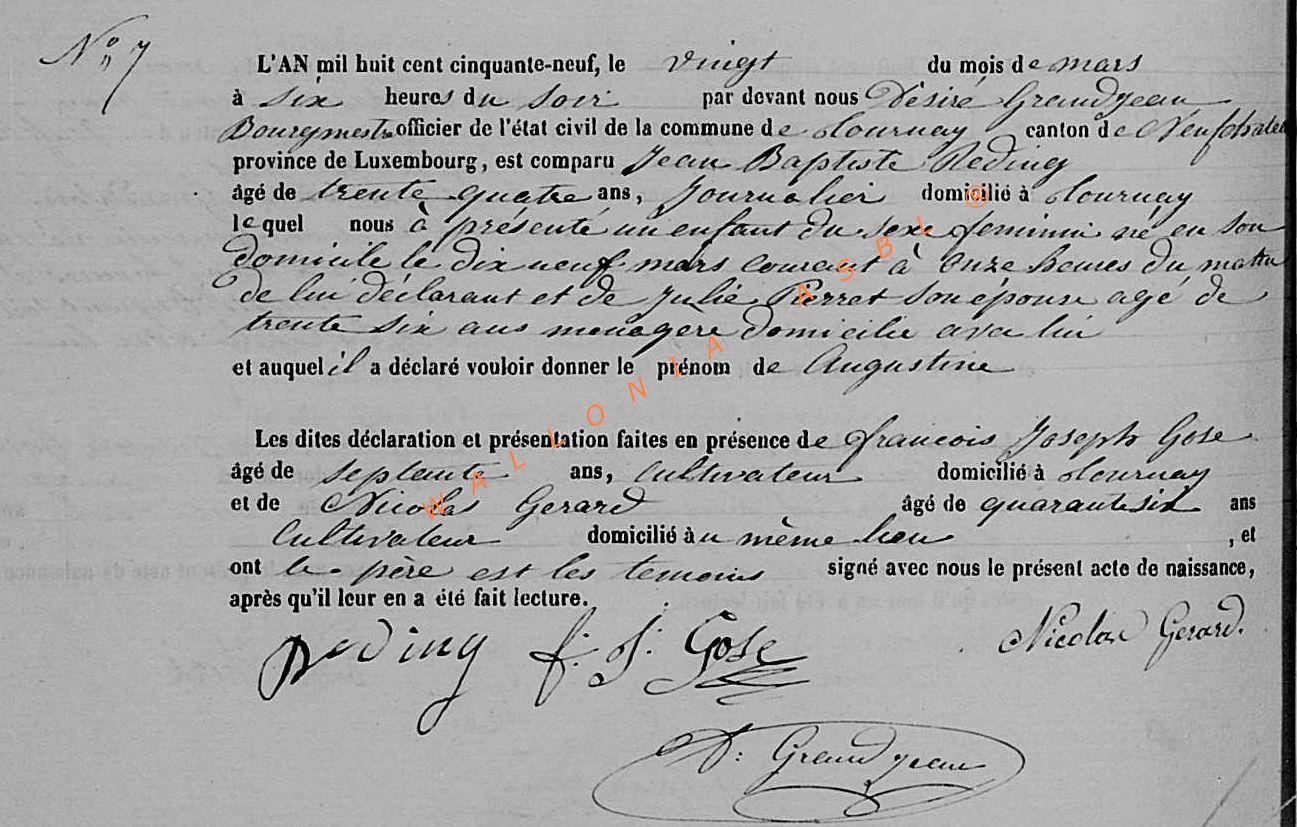 N° 7
L'AN mil huit cent cinquante-neuf, le vingt du mois de mars
à six heures du soir par devant nous Désiré Grandjean
Bourgmestre officier de l'état civil de la commune de Tournay canton de Neufchateau
province de Luxembourg, est comparu Jean Baptiste Reding
âgé de trente quatre ans, Journalier domicilié à Tournay
lequel nous à présenté un enfant du sexe feminin né en son
domicile le dix neuf mars courant à onze heures du matin
de lui déclarant et de Julie Pierret son épouse agé de
trente six ans menagère domicilie avec lui
et auquel il a déclaré vouloir donner le prénom de Augustine
Les dites déclaration et présentation faites en présence de francois Joseph Gose
âgé de septente ans, Cultivateur domicilié à Tournay
et de Nicolas Gerard âgé de quarante six ans
Cultivateur domicilié au mème lieu , et
ont le père est les temoins signé avec nous le présent acte de naissance,
après qu'il leur en a été fait lecture.
Reding f: J: Gose Nicolas Gerard.
D: Grandjean
WALLONIA ASBL ©